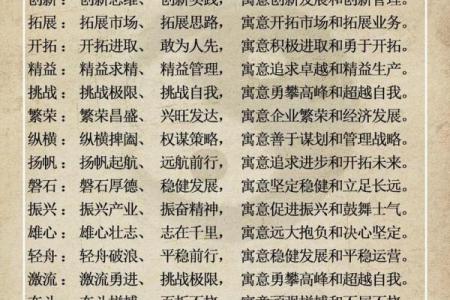 创新：创新思维、创新实践，寓意创新发展和创新管理。
拓展：拓展市场、拓展思路，寓意开拓市场和拓展业务。
开拓：开拓进取、敢为人先，寓意积极进取和勇于开拓。
精益：精益求精、精益管理，寓意追求卓越和精益生产。
挑战：挑战极限、挑战自我，寓意勇攀高峰和超越自我。
繁荣：繁荣昌盛、兴旺发达，寓意企业繁荣和经济发展。
纵横：纵横捭阖、权谋策略，寓意善于谋划和管理战略。
扬帆：扬帆起航、远航前行，寓意追求进步和开拓未来。
磐石：磐石厚德、稳健发展，寓意坚定稳健和立足长远。
振兴：振兴产业、振奋精神，寓意促进振兴和鼓舞士气。
雄心：雄心壮志、志在千里，寓意远大抱负和决心坚定。
轻舟：轻舟破浪、平稳前行，寓意稳健发展和平稳运营。
激流：激流勇进、挑战极限，寓意勇攀高峰和超越自我。